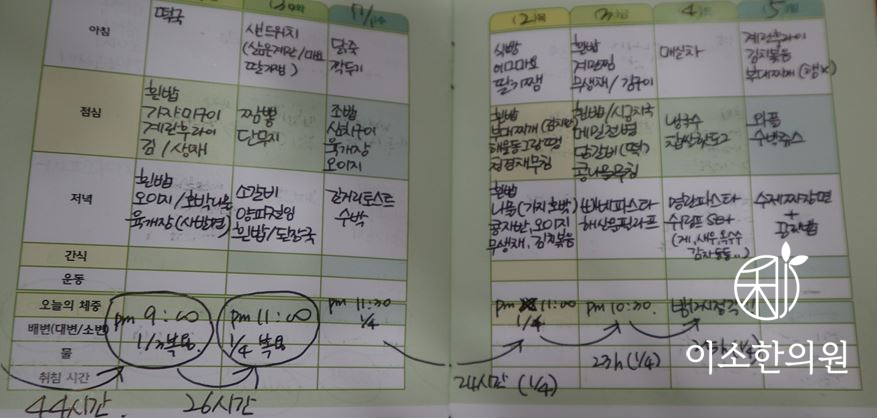 30화
11/1수
(2)목
(3)금
4토
5일
아침
떡국
샌드위치
(삶은계란/마요
딸기잼)
닭죽
깍두기
식빵
에그마요
딸기잼
흰밥
계란찜
무생채/김구이
매실차
계란후라이
김치볶음
부대찌개(햄x)
점심
흰밥
가자미구이
계란후라이
김/생채
짬뽕
단무지
초밥
삼치구이
육개장
오이지
흰밥
부대찌개
해물동그랑땡
흰밥/시금치국
메밀전병
닭갈비(떡)
콩나물무침
냉국수
찹쌀핫도그
와플
수박쥬스
저녁
흰밥
오이지/호박나물
육개장(사발면)
소갈비
양파절임
흰밥/된장국
길거리토스트
수박
흰밥
나물(가지호박)
콩자반, 오이지
무생채, 김치볶음
바베큐파스타
해산물필라프
명란파스타
쉬림프 set
(게,새우,옥수수
감자 등등..)
수제짜장면
+
간식
운동
오늘의 체중
배변(대변/소변)
물
취침 시간
pm 9:00
1/3복용
pm 11:00
1/4 복용
pm 11:30
1/4
pm 11:00
1/4
pm 10:30
44시간
26시간
24시간 (1/4)
23h (1/4)
이소한의원